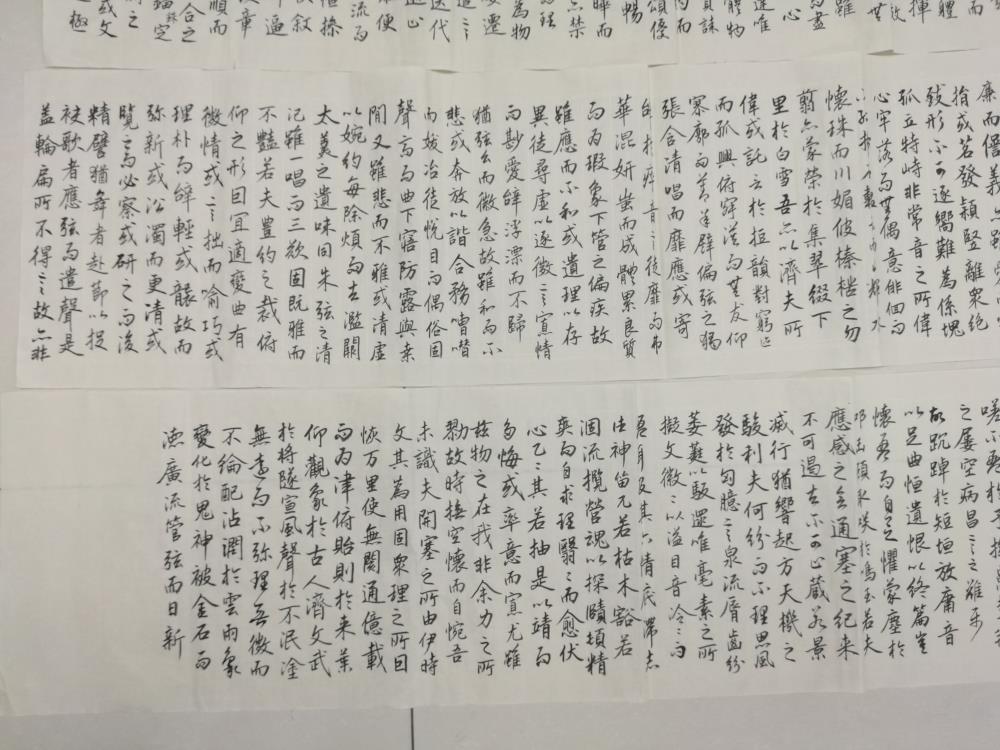 體
揮而
為物
代
章
極
廉而僭義
指或苕發穎豎離眾絕
致形不可逐嚮難為係塊
孤立特峙非常音之所偉
心牢落而無偶意徘徊而
水
懷珠而川媚彼榛楛之勿
翦亦蒙榮於集翠綴下
里於白雪吾亦以濟夫所
偉或託言於短韻對窮迹
而孤興俯寂漠而無友仰
寥廓而莫承譬偏弦之獨
張含清唱而靡應或寄
瘁音言徒靡而弗
華混妍蚩而成體累良質
而為瑕象下管之偏疾故
雖應而不和或遺理以存
異徒尋虛以逐微言寡情
而尠愛辭浮漂而不歸
猶弦幺而徽急故雖和而不
悲或奔放以諧合務嘈囋
而妖冶徒悅目而偶俗固
聲高而曲下寤防露與桑
間又雖悲而不雅或清虛
以婉約每除煩而去濫闕
太羹之遺味同朱弦之清
氾雖一唱而三歎固既雅而
不豔若夫豐約之裁俯
仰之形因宜適變曲有
微情或言拙而喻巧或
理朴而辭輕或襲故而
彌新或沿濁而更清或
覽之而必察或研之而後
精譬猶舞者赴節以投
袂歌者應弦而遣聲是
蓋輪扁所不得言故亦非
嗟不
之屢空病昌言之難屬
故踸踔於短垣放庸音
以足曲恒遺恨以終篇豈
懷盈而自足懼蒙塵於
叩缶顧取笑於鳴玉若夫
應感之會通塞之紀來
不可遏去不可止藏若景
滅行猶響起方天機之
駿利夫何紛而不理思風
發於匈臆言泉流脣齒紛
葳蕤以馺遝唯毫素之所
擬文徽徽以溢目音泠泠而
及其六情底滯志
往神留兀若枯木豁若
涸流攬營魂以探賾頓精
爽而自求理翳翳而愈伏
思乙乙其若抽是以竭而
多悔或率意而寡尤雖
茲物之在我非余力之所
勠故時撫空懷而自惋吾
未識夫開塞之所由伊時
文其為用固眾理之所因
恢万里使無閡通億載
而為津俯貽則於來葉
仰觀象於古人濟文武
於將墜宣風聲於不泯塗
無遠而不彌理無微而
不綸配沾潤於雲雨象
變化於鬼神被金石而
德廣流管弦而日新